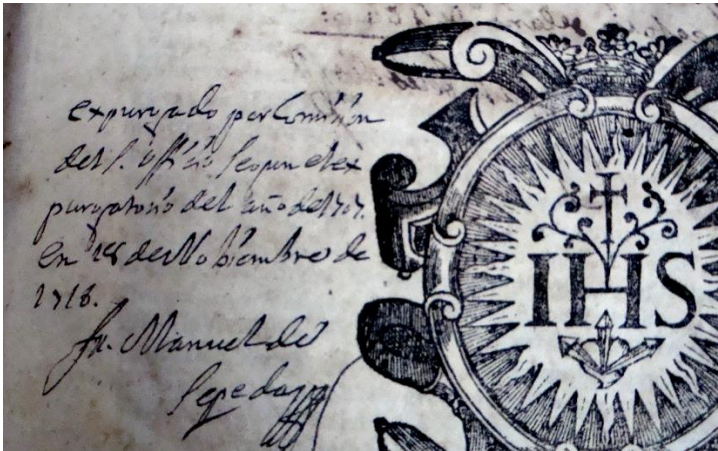 expurgado por Comisión
del S. offiçio segun el ex
purgatorio del año de 1707.
en 18 de Nobiembre de
1718.
fr. Manuel de
Sepeda
IHS